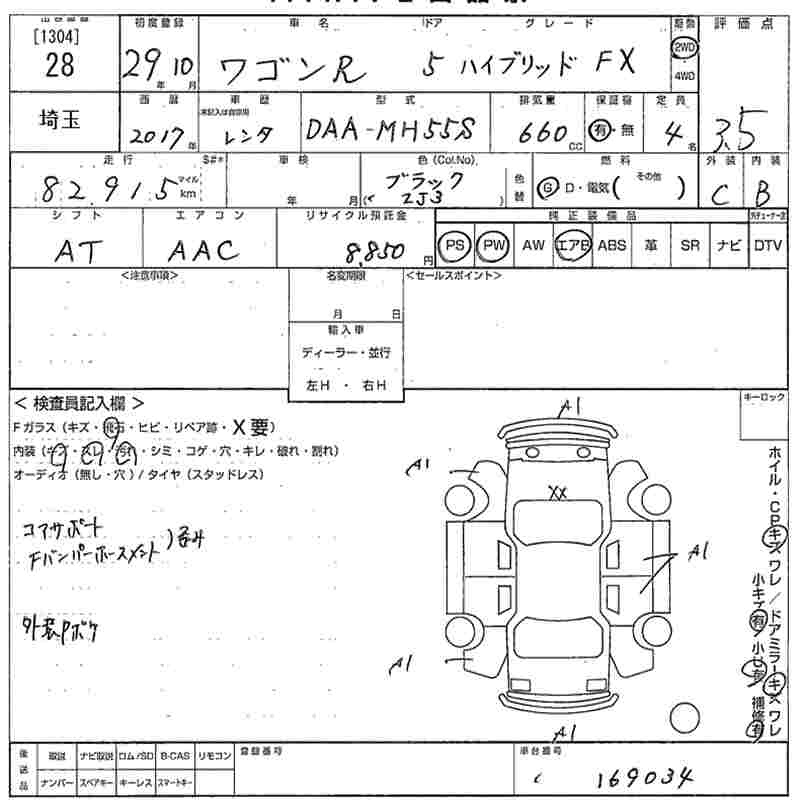 [1304]
28
初度登録
29年10月
車名
ワゴンR
ドア
5
グレード
ハイブリッド FX
駆動
2WD
4WD
評価点
3.5
埼玉
西暦
2017年
車歴
未記入は自家用
レンタ
型式
DAA-MH55S
排気量
660CC
保証書
有・無
定員
4名
走行
82,915マイルkm
S#*
車検
年 月
色(Col.No)
ブラック
( 2J3 )
色替
燃料
G D・電気( その他 )
外装
C
内装
B
シフト
AT
エアコン
AAC
リサイクル預託金
8,850円
純正装備品
PS PW AW エアB ABS 革 SR ナビ DTV
<注意事項>
名変期限
月 日
輸入車
ディーラー・並行
左H ・ 右H
<セールスポイント>
キーロック
< 検査員記入欄 >
Fガラス(キズ・飛石・ヒビ・リペア跡・X要)
内装(キズ・スレ・汚れ・シミ・コゲ・穴・キレ・破れ・割れ)
オーディオ(無し・穴)/タイヤ(スタッドレス)
コアサポート
Fバンパーホースメント
外装Pボケ
A1
A1
XX
A1
A1
A1
ホイル・CPキズ ワレ/ドアミラーキズ ワレ
小キズ有 小ヒ有 補修有
後送品
取説 ナビ取説 ロム/SD B-CAS リモコン
ナンバー スペアキー キーレス スマートキー
登録番号
車台番号
169034